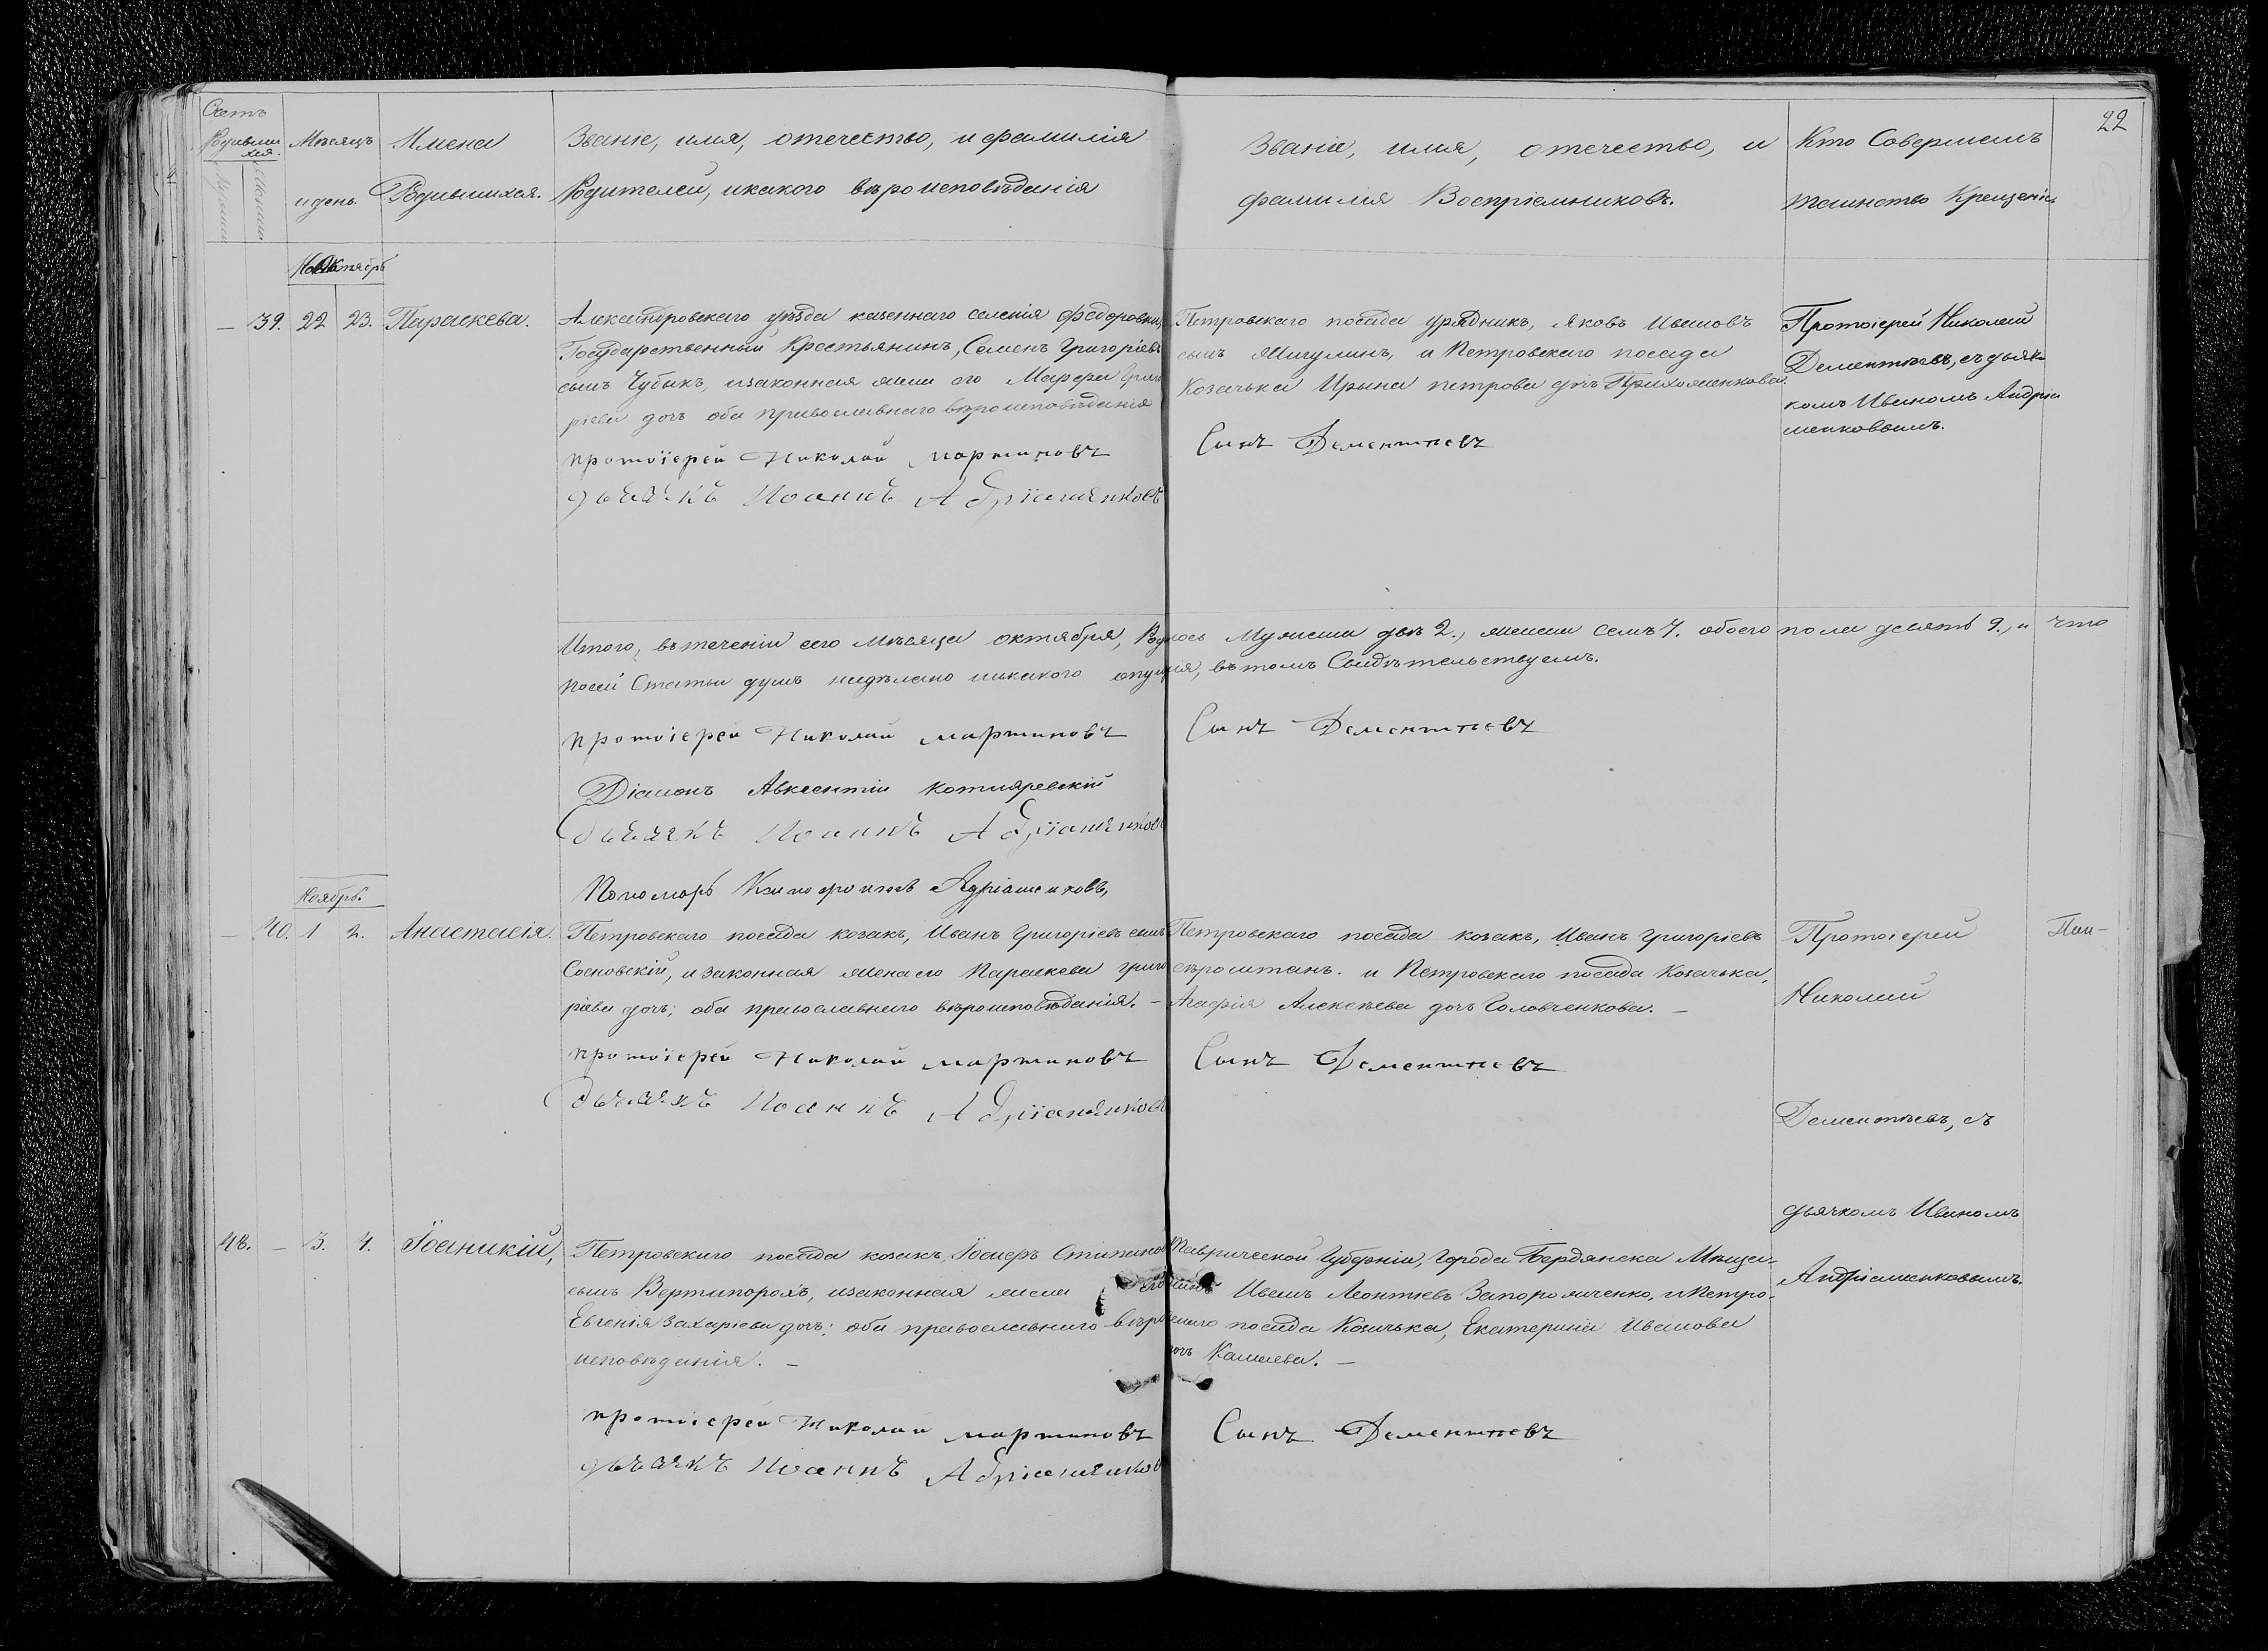 22
Счетъ Родившихся.
Мѣсяцъ и день.
Имена Родившихся.
Званіе, имя, отечество, и фамилія
Родителей, и какого вѣроисповѣданія
Званіе, имя, отечество, и
фамилія Воспріемниковъ.
Кто Совершалъ
таинство Крещенія
Октябрь
— 39. 22 23. Параскева.
Александровскаго уѣзда казеннаго селенія Федоровки,
Государственный Крестьянинъ, Семенъ Григоріевъ
сынъ Чубыкъ, и законная жена его Марфа Григо
ріева дочь оба православнаго вѣроисповѣданія
протоіерей Николай мартиновъ
дьячекъ Иоаннъ Адріаненковъ
Петровскаго посада урядникъ, Яковъ Ивановъ
сынъ Мигулинъ, и Петровскаго посада
Козачька Ирына петрова дочь
Сынъ Дементьевъ
Протоіерей Николай
Дементьевъ, съ дьяч
комъ Иваномъ Андріа
ненковымъ.
Итого, въ теченіи сего мѣсяца октября, Родилось Мужеска два 2., женска семь 7. обоего пола девять 9., и что
по сей Статьи душъ никакого въ томъ Свидѣтельствуемъ.
протоіерей Николай мартиновъ
Сынъ Дементьевъ
Діаконъ Авксентій котляревскій
дьячекъ Иоаннъ Адріаненковъ
Пономарь Адріаненковъ,
Ноябрь.
— 40. 1 2. Анастасія.
Петровскаго посада козакъ, Иванъ Григоріевъ сынъ
Сосновскій, и законная жена его Параскева григо
ріева дочь; оба православнаго вѣроисповѣданія. —
протоіерей Николай мартиновъ
дьячекъ Иоаннъ Адріаненковъ
Петровскаго посада козакъ, Иванъ Григоріевъ
и Петровскаго посада Козачька,
Агафія Алексѣева дочь Головченкова. —
Сынъ Дементьевъ
Протоіерей
Николай
Дементьевъ, съ
дьячкомъ Иваномъ
Андріаненковымъ.
48. — 3. 4. Іоаникій,
Петровскаго посада козакъ, Іосифъ
сынъ Вертипорохъ, и законная жена его
Евгенія Захаріева дочь; оба православнаго вѣро
исповѣданія. —
протоіерей Николай мартиновъ
дьячекъ Иоаннъ Адріаненковъ
Таврической Губерніи, города Бердянска Мѣща-
нинъ Иванъ Леонтіевъ Запорожченко, и Петро-
вскаго посада Козачька, Екатерина Иванова
дочь Камаева. —
Сынъ Дементьевъ